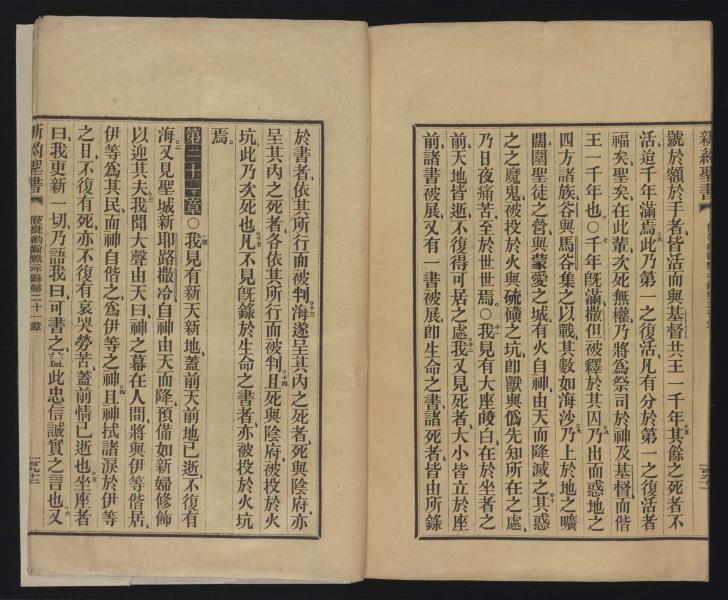 新約聖書
號於額於手者皆活而與基督共王一千年其餘之死者不
活迨千年滿焉此乃第一之復活凡有分於第一之復活者
福矣聖矣在此輩次死無權乃將為祭司於神及基督而偕
王一千年也○千年既滿撒但被釋於其囚乃出而惑地之
四方諸族谷與馬谷集之以戰其數如海沙乃上於地之曠
闊圍聖徒之營與蒙愛之城有火自神由天而降滅之其惑
之之魔鬼被投於火與硫磺之坑即獸與偽先知所在之處
乃日夜痛苦至於世世焉○我見有大座皦白在於坐者之
前天地皆逝不復得可居之處我又見死者大小皆立於座
前諸書被展又有一書被展即生命之書諸死者皆由所錄
於書者依其所行而被判海遂呈其內之死者死與陰府亦
呈其內之死者各依其所行而被判且死與陰府被投於火
坑此乃次死也凡不見既錄於生命之書者亦被投於火坑
焉
第二十一章○我見有新天新地蓋前天前地已逝不復有
海又見聖城新耶路撒冷自神由天而降預備如新婦修飾
以迎其夫我聞大聲由天曰神之幕在人間將與伊等偕居
伊等為其民而神自偕之為伊等之神且神拭諸淚於伊等
之目不復有死亦不復有哀哭勞苦蓋前情已逝也坐座者
曰我更新一切乃語我曰可書之蓋此忠信誠實之言也又
新約聖書